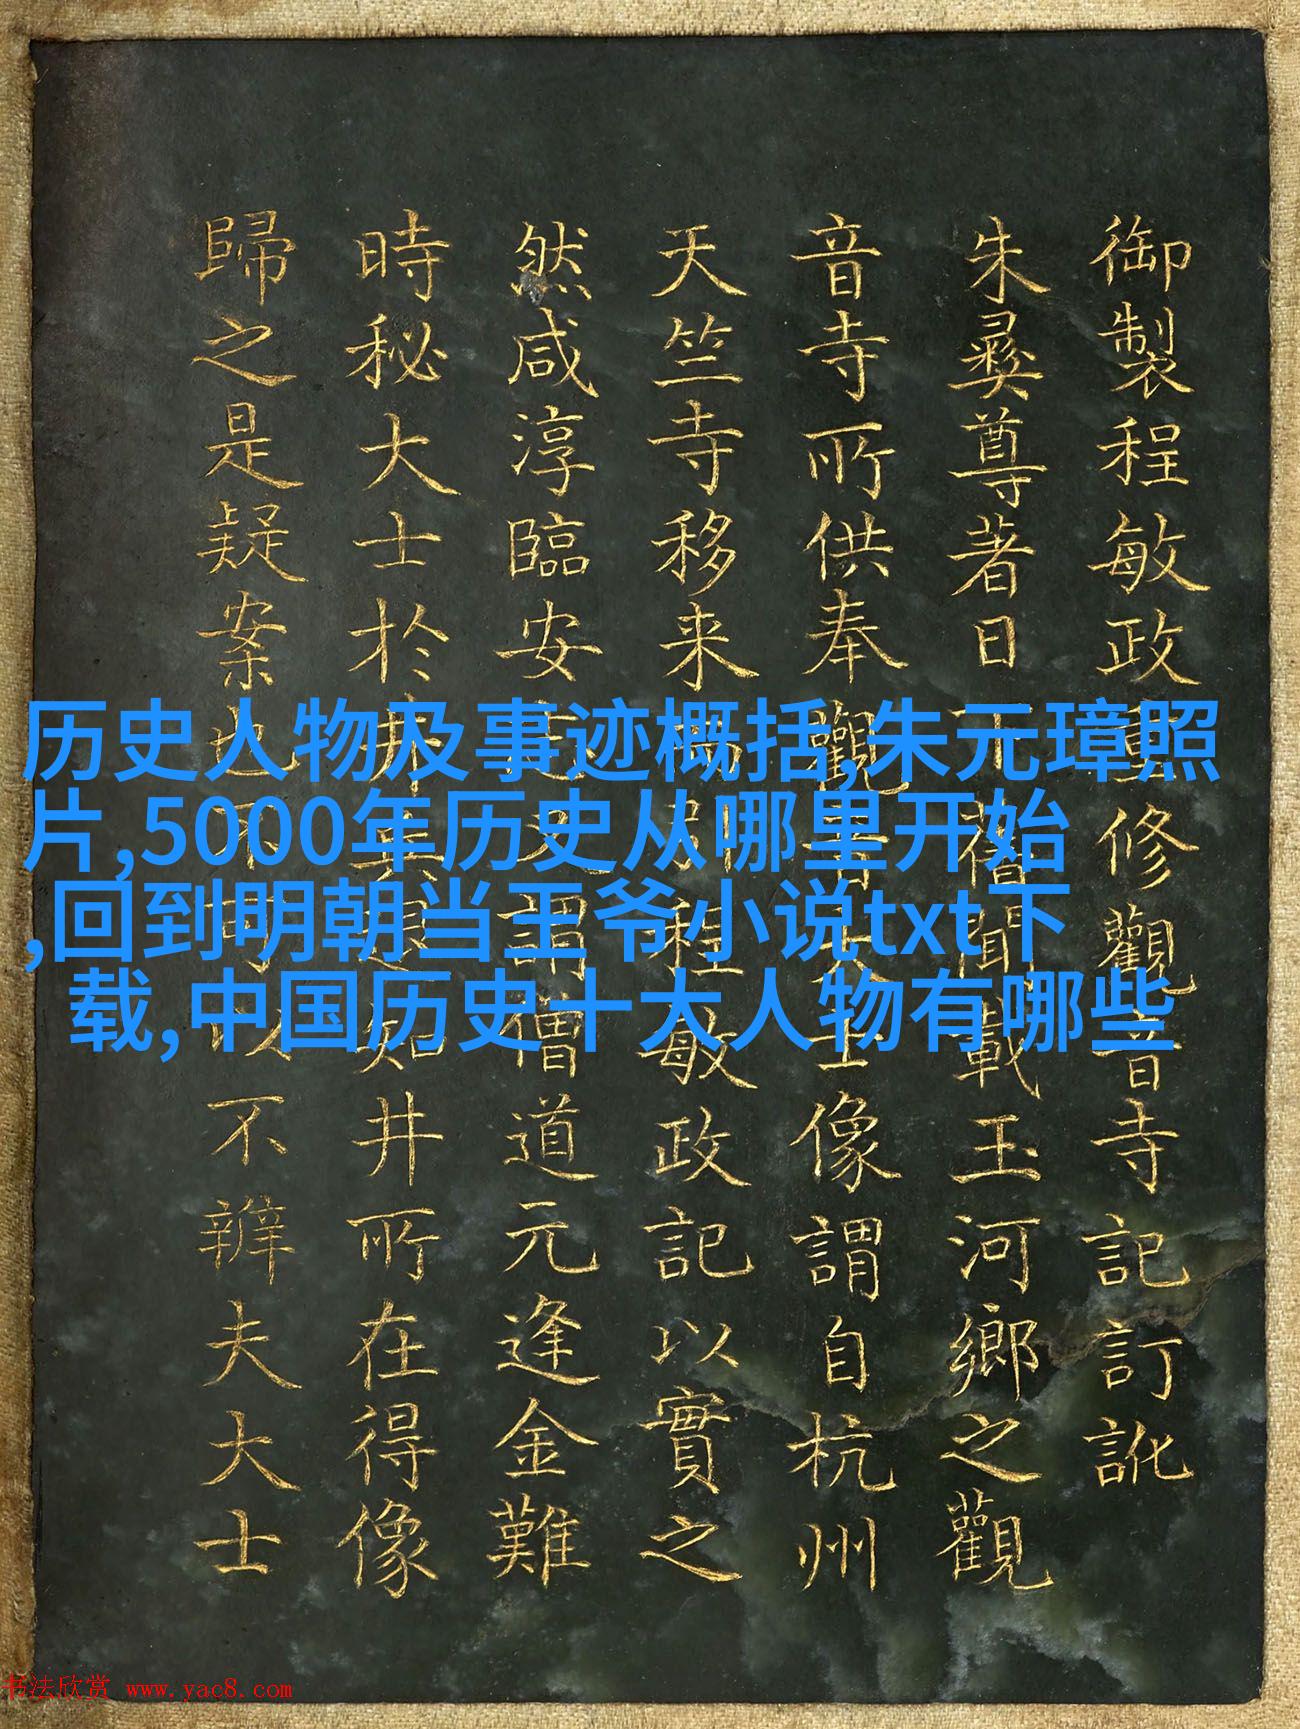 御製程敏政重修觀音寺記訂訛
朱彝尊著日下舊聞載玉河鄉之觀
音寺所供奉觀音大士像謂自杭州
天竺寺移来為程敏政記以實之
然咸淳臨安志又謂僧道元逢金難
時秘大士於井井所在得像
歸之是疑案也不可以不辨夫大士
历史人物及事迹概括,朱元璋照
片,5000年历史从哪里开始
,回到明朝当王爷小说txt下
载,中国历史十大人物有哪些
书法欣赏 www.yac8.com